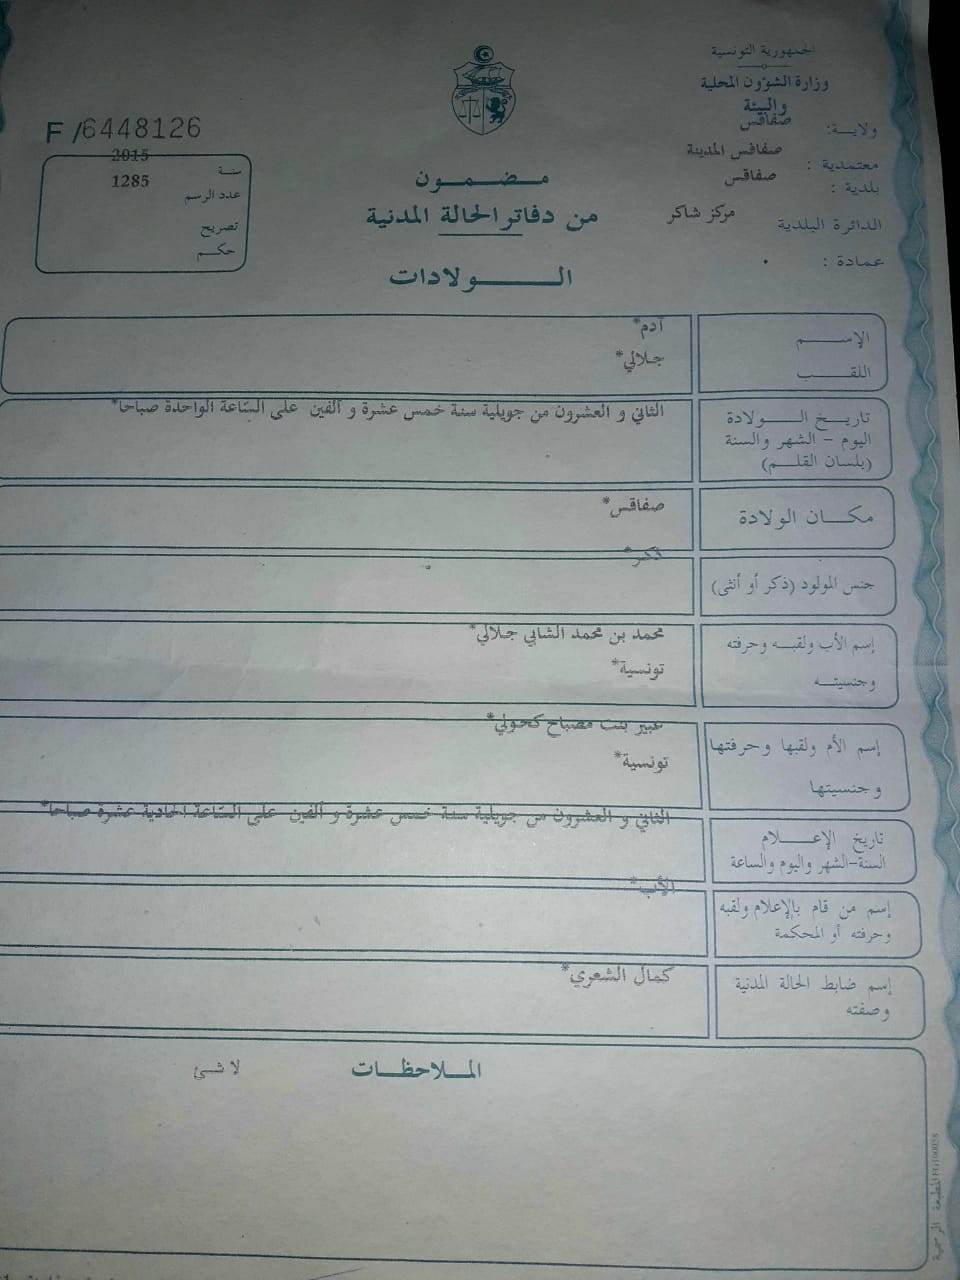 الجمهورية التونسية
وزارة الشؤون المحلية
والبيئة
ولاية: صفاقس
معتمدية : صفاقس المدينة
بلدية : صفاقس
الدائرة البلدية مركز شاكر
عمادة :
F /6448126
سنة 2015
عدد الرسم 1285
تصريح
حكم
مضمون
من دفاتر الحالة المدنية
الولادات
الإسم آدم*
اللقب جلالي*
تاريخ الولادة
اليوم - الشهر والسنة
(بلسان القلم)
الثاني و العشرون من جويلية سنة خمس عشرة و ألفين على السّاعة الواحدة صباحا*
مكان الولادة صفاقس*
جنس المولود (ذكر أو أنثى) ذكر*
إسم الأب ولقبه وحرفته
وجنسيته
محمد بن محمد الشابي جلالي*
تونسية*
إسم الأم ولقبها وحرفتها
وجنسيتها
عبير بنت مصباح كحولي*
تونسية*
تاريخ الإعلام
السنة-الشهر واليوم والساعة
الثاني و العشرون من جويلية سنة خمس عشرة و ألفين على السّاعة الحادية عشرة صباحا*
إسم من قام بالإعلام ولقبه
وحرفته أو المحكمة
الأب*
إسم ضابط الحالة المدنية
وصفته
كمال الشعري*
الملاحظات
لا شئ
المطبعة الرسمية